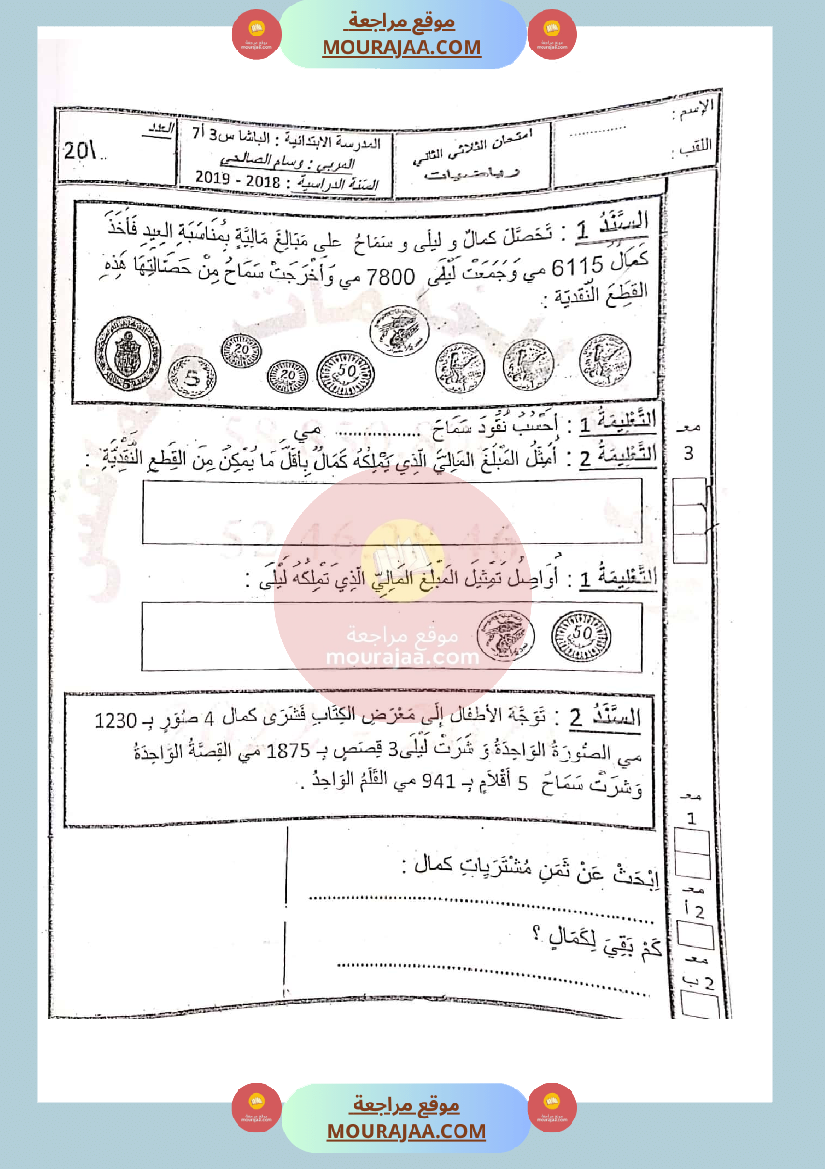 موقع مراجعة
MOURAJAA.COM
الإسم : ..............
اللقب :
امتحان الثلاثي الثاني
رياضيات
المدرسة الابتدائية : الباشا س3 أ7
المربي : وسام الصالحي
السنة الدراسية : 2018 - 2019
العدد
..\20
السَّنَدُ 1 : تَحَصَّلَ كمالٌ و ليلَى و سَمَاحُ على مَبَالِغَ مَالِيَّةٍ بِمُنَاسَبَةِ العِيدِ فَأَخَذَ
كَمَالُ 6115 مي وَجَمَعَتْ لَيْلَى 7800 مي وَأَخْرَجَتْ سَمَاحُ مِنْ حَصَّالَتِهَا هَذِهِ
القِطَعَ النَّقْدِيَّة :
5
20
20
50
التَّعْلِيمَةُ 1 : أَحْسُبُ نُقُودَ سَمَاحَ ................. مي
التَّعْلِيمَةُ 2 : أُمَثِّلُ المَبْلَغَ المَالِيَّ الَّذِي يَمْلِكُهُ كَمَالٌ بِأَقَلِّ مَا يُمْكِنُ مِنَ القِطَعِ النَّقْدِيَّةِ :
مع
3
التَّعْلِيمَةُ 1 : أُوَاصِلُ تَمْثِيلَ المَبْلَغِ المَالِيِّ الَّذِي تَمْلِكُهُ لَيْلَى :
50
موقع مراجعة
mourajaa.com
السَّنَدُ 2 : تَوَجَّهَ الأطفال إِلَى مَعْرَضِ الكِتَابِ فَشَرَى كمال 4 صُوَرٍ بِـ 1230
مي الصُّورَةُ الوَاحِدَةُ وَ شَرَتْ لَيْلَى3 قِصَصٍ بِـ 1875 مي القِصَّةُ الوَاحِدَةُ
وَشَرَتْ سَمَاحُ 5 أَقْلَامٍ بِـ 941 مي القَلَمُ الوَاحِدُ .
مع
1
اِبْحَثْ عَنْ ثَمَنِ مُشْتَرَيَاتِ كمال :
مع
2 أ
كَمْ بَقِيَ لِكَمَالٍ ؟
مع
2 ب
موقع مراجعة
MOURAJAA.COM